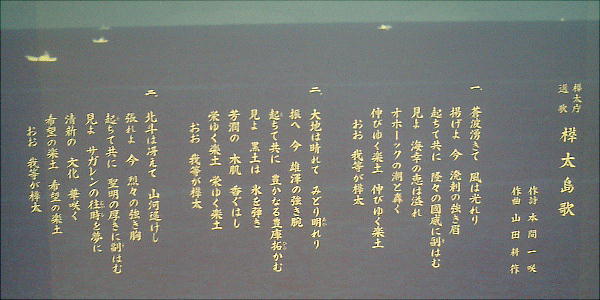 樺太庁
選歌
樺太島歌
作詩 本間一咲
作曲 山田耕作
一、
蒼波湧きて 風は光れり
揚げよ 今 溌剌の強き眉
起ちて共に 隆々の國威に副はむ
見よ 海幸の恵は溢れ
オホーツクの潮と轟く
伸びゆく楽土 伸びゆく楽土
おお 我等が樺太
二、
大地は晴れて みどり明れり
振へ 今 雄渾の強き腕
起ちて共に 豊かなる豊庫拓かむ
見よ 黒土は 氷を弾き
芳潤の 木肌 香ぐはし
栄ゆく楽土 栄ゆく楽土
おお 我等が樺太
三、
北斗は冴えて 山河遥けし
張れよ 今 烈々の強き胸
起ちて共に 聖明の厚きに副はむ
見よ サガレンの往時を夢に
清新の 文化 華咲く
希望の楽土 希望の楽土
おお 我等が樺太